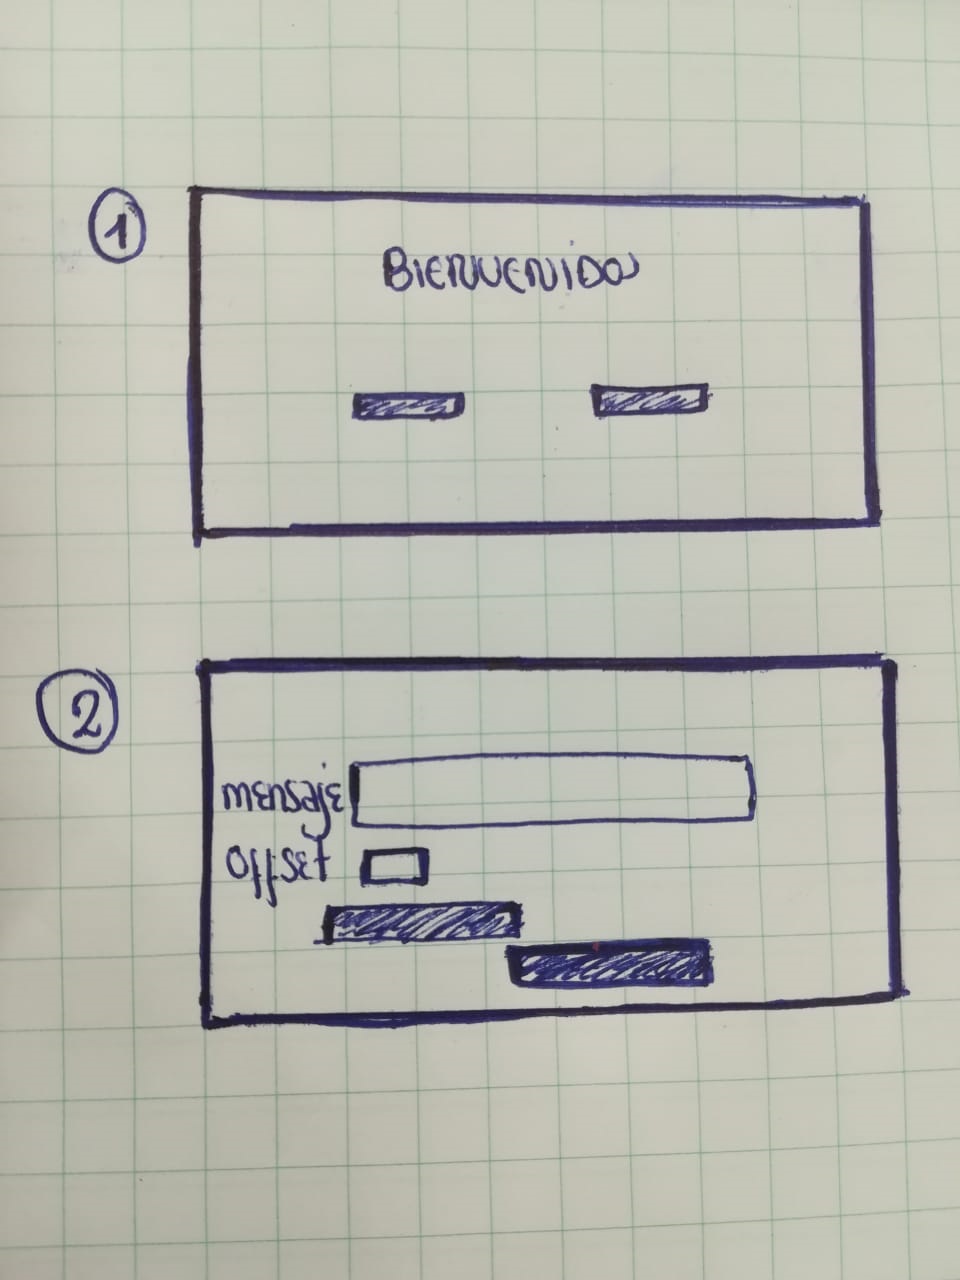 1
BIENVENIDOS
2
mensaje
offset